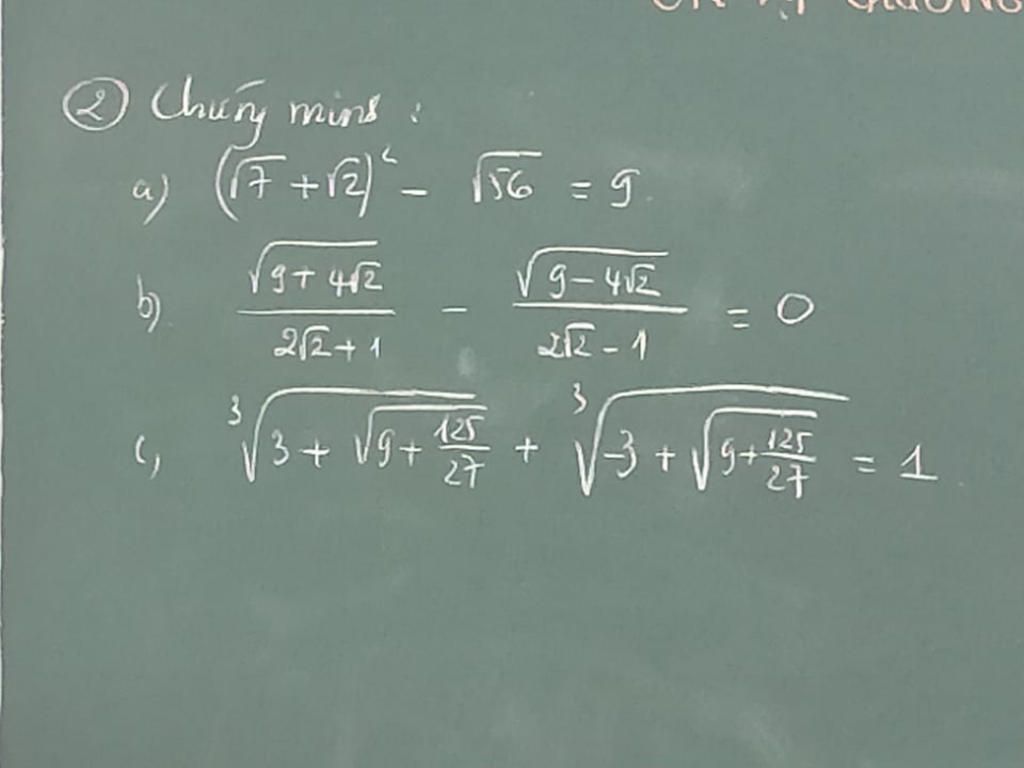 ② Chứng minh :
a) (√7 + √2)² - √56 = 9.
b) √(9 + 4√2) / (2√2 + 1) - √(9 - 4√2) / (2√2 - 1) = 0
c, ∛(3 + √(9 + 125/27)) + ∛(-3 + √(9 + 125/27)) = 1